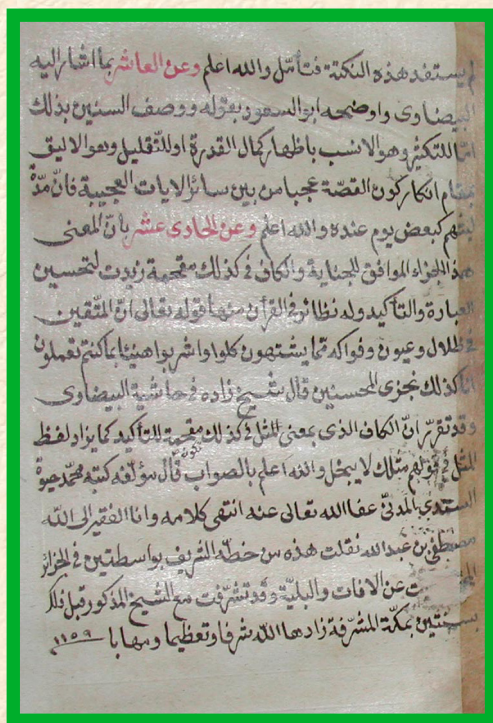 لم يستفد هذه النكتة فتأمّل والله اعلم وعن العاشر بما اشار اليه
البيضاوى واوضحه ابو السعود بقوله ووصف السنين بذلك
امّا للتكثير وهو الانسب باظهار كمال القدرة او للتقليل وهو الاليق
بمقام انكار كون القصّة عجبا من بين سائر الايات العجيبة فانّ مدّة
لبثهم كبعض يوم عنده والله اعلم وعن الحادى عشر بانّ المعنى
هذا الجزاء الموافق للجناية والكاف فى كذلك مقحمة زيدت لتحسين
العبارة والتأكيد وله نظائر فى القرآن منها قوله تعالى انّ المتّقين
فى ظلال وعيون وفواكه ممّا يشتهون كلوا واشربوا هنيئا بما كنتم تعملون
انّا كذلك نجزى المحسنين قال شيخ زاده فى حاشية البيضاوى
وقد تقرّر انّ الكاف الذى بمعنى المثل فى كذلك مقحمة للتأكيد كما يزاد لفظ
المثل فى قولهم مثلك لا يبخل والله اعلم بالصواب قال مؤلفه كتبه محمّد حيوة
السندى المدنىّ عفا الله تعالى عنه انتهى كلامه وانا الفقير الى الله
مصطفى بن عبد الله نقلت هذه من خطّه الشريف بواسطتين فى الجزائر
عن الافات والبليّة وقد تشرّفت مع الشيخ المذكور قبل ذلك
بسنتين بمكّة المشرّفة زادها الله شرفا وتعظيما ومهابا ١١٥٩